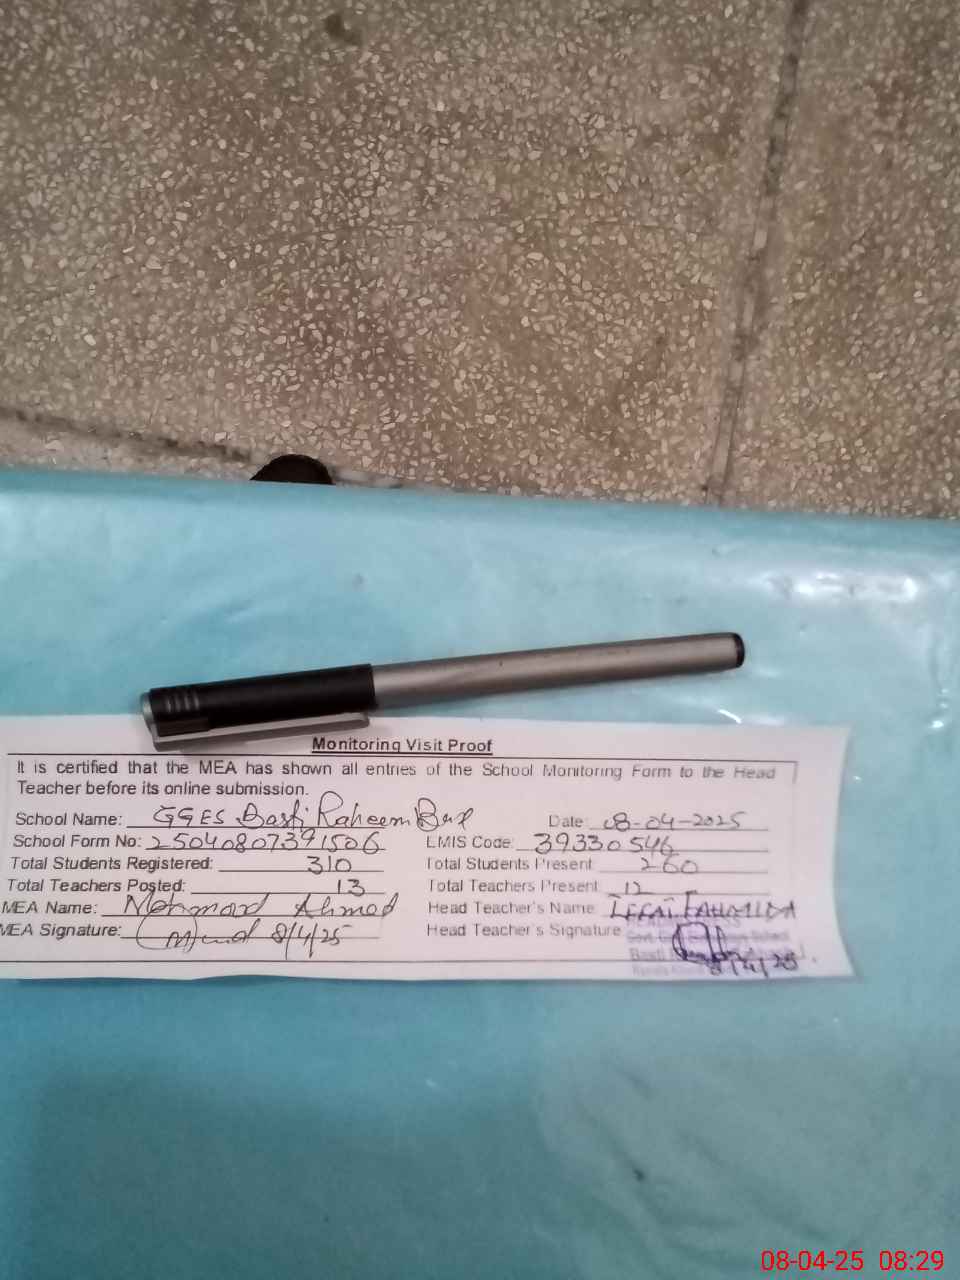 Monitoring Visit Proof
It is certified that the MEA has shown all entries of the School Monitoring Form to the Head
Teacher before its online submission.
School Name: GGES Basti Raheem Bux Date: 08-04-2025
School Form No: 25040807391506 LMIS Code: 39330546
Total Students Registered: 310 Total Students Present 260
Total Teachers Posted: 13 Total Teachers Present 12
MEA Name: Mehmood Ahmed Head Teacher's Name IFFAT FAHMIDA
MEA Signature: 8/4/25 Head Teacher's Signature
Basti
8/4/25
08-04-25 08:29